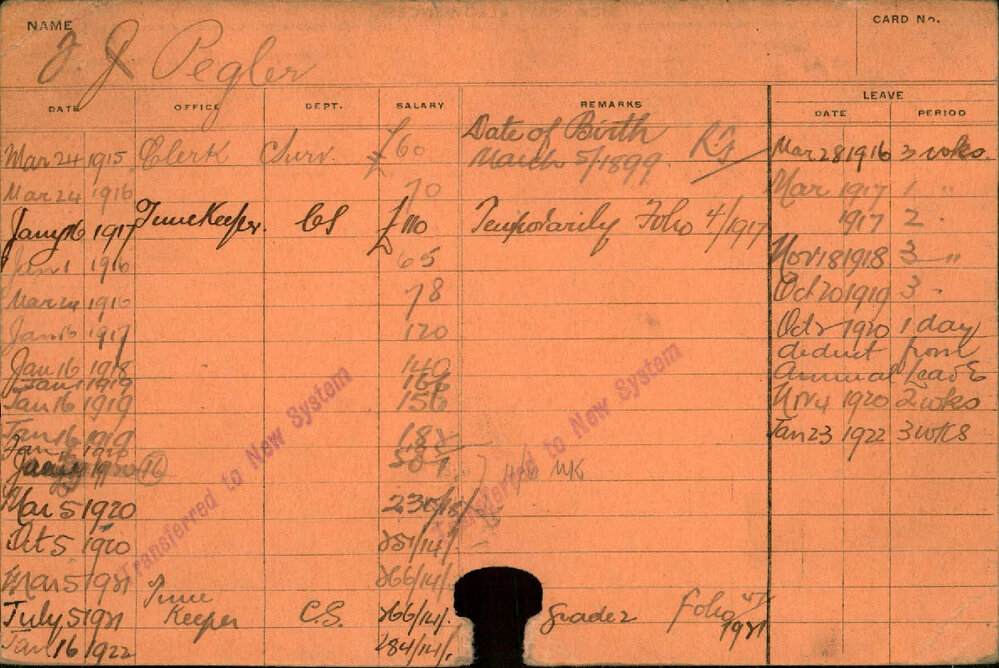 NAME
J. J. Pegler
CARD No.
DATE OFFICE DEPT. SALARY REMARKS LEAVE
DATE PERIOD
Date of Birth
Mar 24 1915 Clerk Surv. £60 March 5/1899 Mar 28 1916 3 wks.
Mar 24 1916 70 Mar 1917 1 "
Jany 16 1917 TimeKeeper. CS £110 Temporarily Folio 4/1917 1917 2 "
Jan 1 1916 65 Nov 18 1918 3 "
Mar 24 1916 78 Oct 20 1919 3 "
Jan 16 1917 120 Oct 1920 1 day
Jan 16 1918 140 deduct from
Jan 1 1919 166 Annual Leave
Jan 16 1919 156 Nov 4 1920 2 wks
Jan 16 1919 Jan 23 1922 3 wks
16
Mar 5 1920
Oct 5 1920 251/14/.
Mar 5 1921 266/14/.
July 5 1921 Time Keeper C.S. 266/14/. Grade 2 Folio 1921
Jan 16 1922 284/14/.
Transferred to New System
Transferred to New System